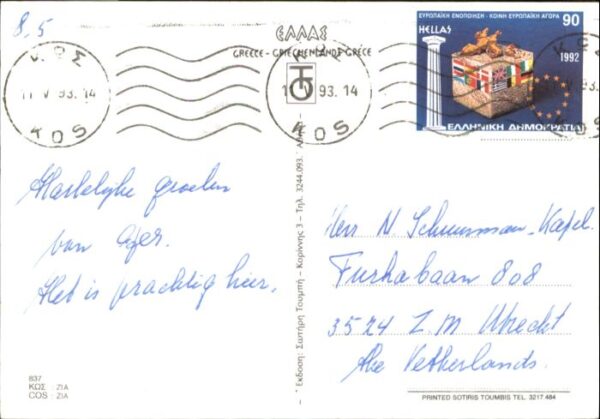 8,5
ΕΛΛΑΣ
GREECE - GRIECHENLAND - GRECE
ΚΩΣ
11 V 93. 14
KOS
93. 14
KOS
ΕΥΡΩΠΑΪΚΗ ΕΝΟΠΟΙΗΣΗ - ΚΟΙΝΗ ΕΥΡΩΠΑΪΚΗ ΑΓΟΡΑ
90
HELLAS
1992
ΕΛΛΗΝΙΚΗ ΔΗΜΟΚΡΑΤΙΑ
Hartelijke groeten
van
Het is prachtig hier.
Herr N. Schuurman-Kapel.
Furkabaan 808
3524 Z.M Utrecht
the Netherlands.
Έκδοση: Σωτήρη Τουμπή - Κορίννης 3 - Τηλ. 3244.093.
837
ΚΩΣ : ΖΙΑ
COS : ZIA
PRINTED SOTIRIS TOUMBIS TEL. 3217 484